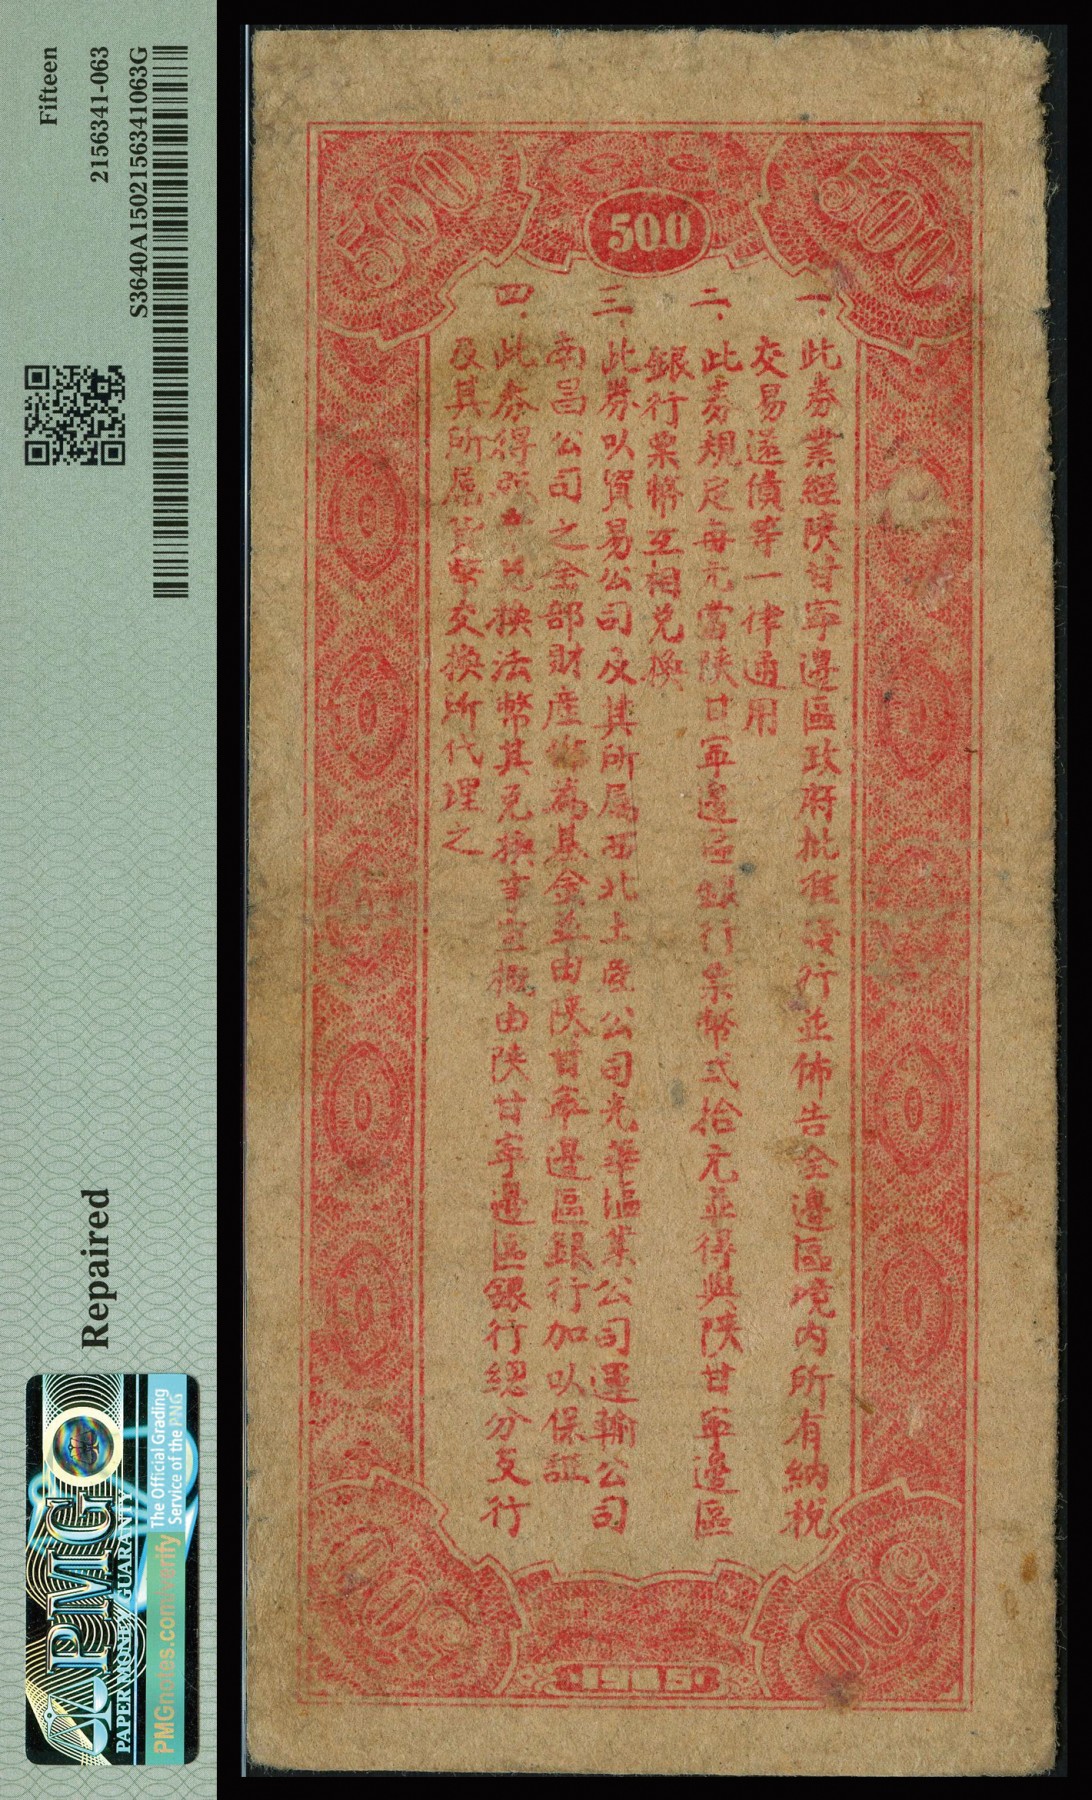 Fifteen
2156341-063
S3640A1502156341063G
Repaired
PMG
PAPER MONEY GUARANTY
The Official Grading
Service of the PNG
PMGnotes.com/verify
500
500
500
一、此券業經陝甘寧邊區政府批准發行並佈告全邊區境內所有納稅
交易還債等一律通用
二、此券規定每元當陝甘寧邊區銀行票幣弍拾元並得與陝甘寧邊區
銀行票幣互相兌換
三、此券以貿易公司及其所屬西北土產公司光華塩業公司運輸公司
南昌公司之全部財產 為基金並由陝甘寧邊區銀行加以保証
四、此券得 兌換法幣其兌換事宜概由陝甘寧邊區銀行總分支行
及其所屬貨幣交換所代理之
500
1945
500